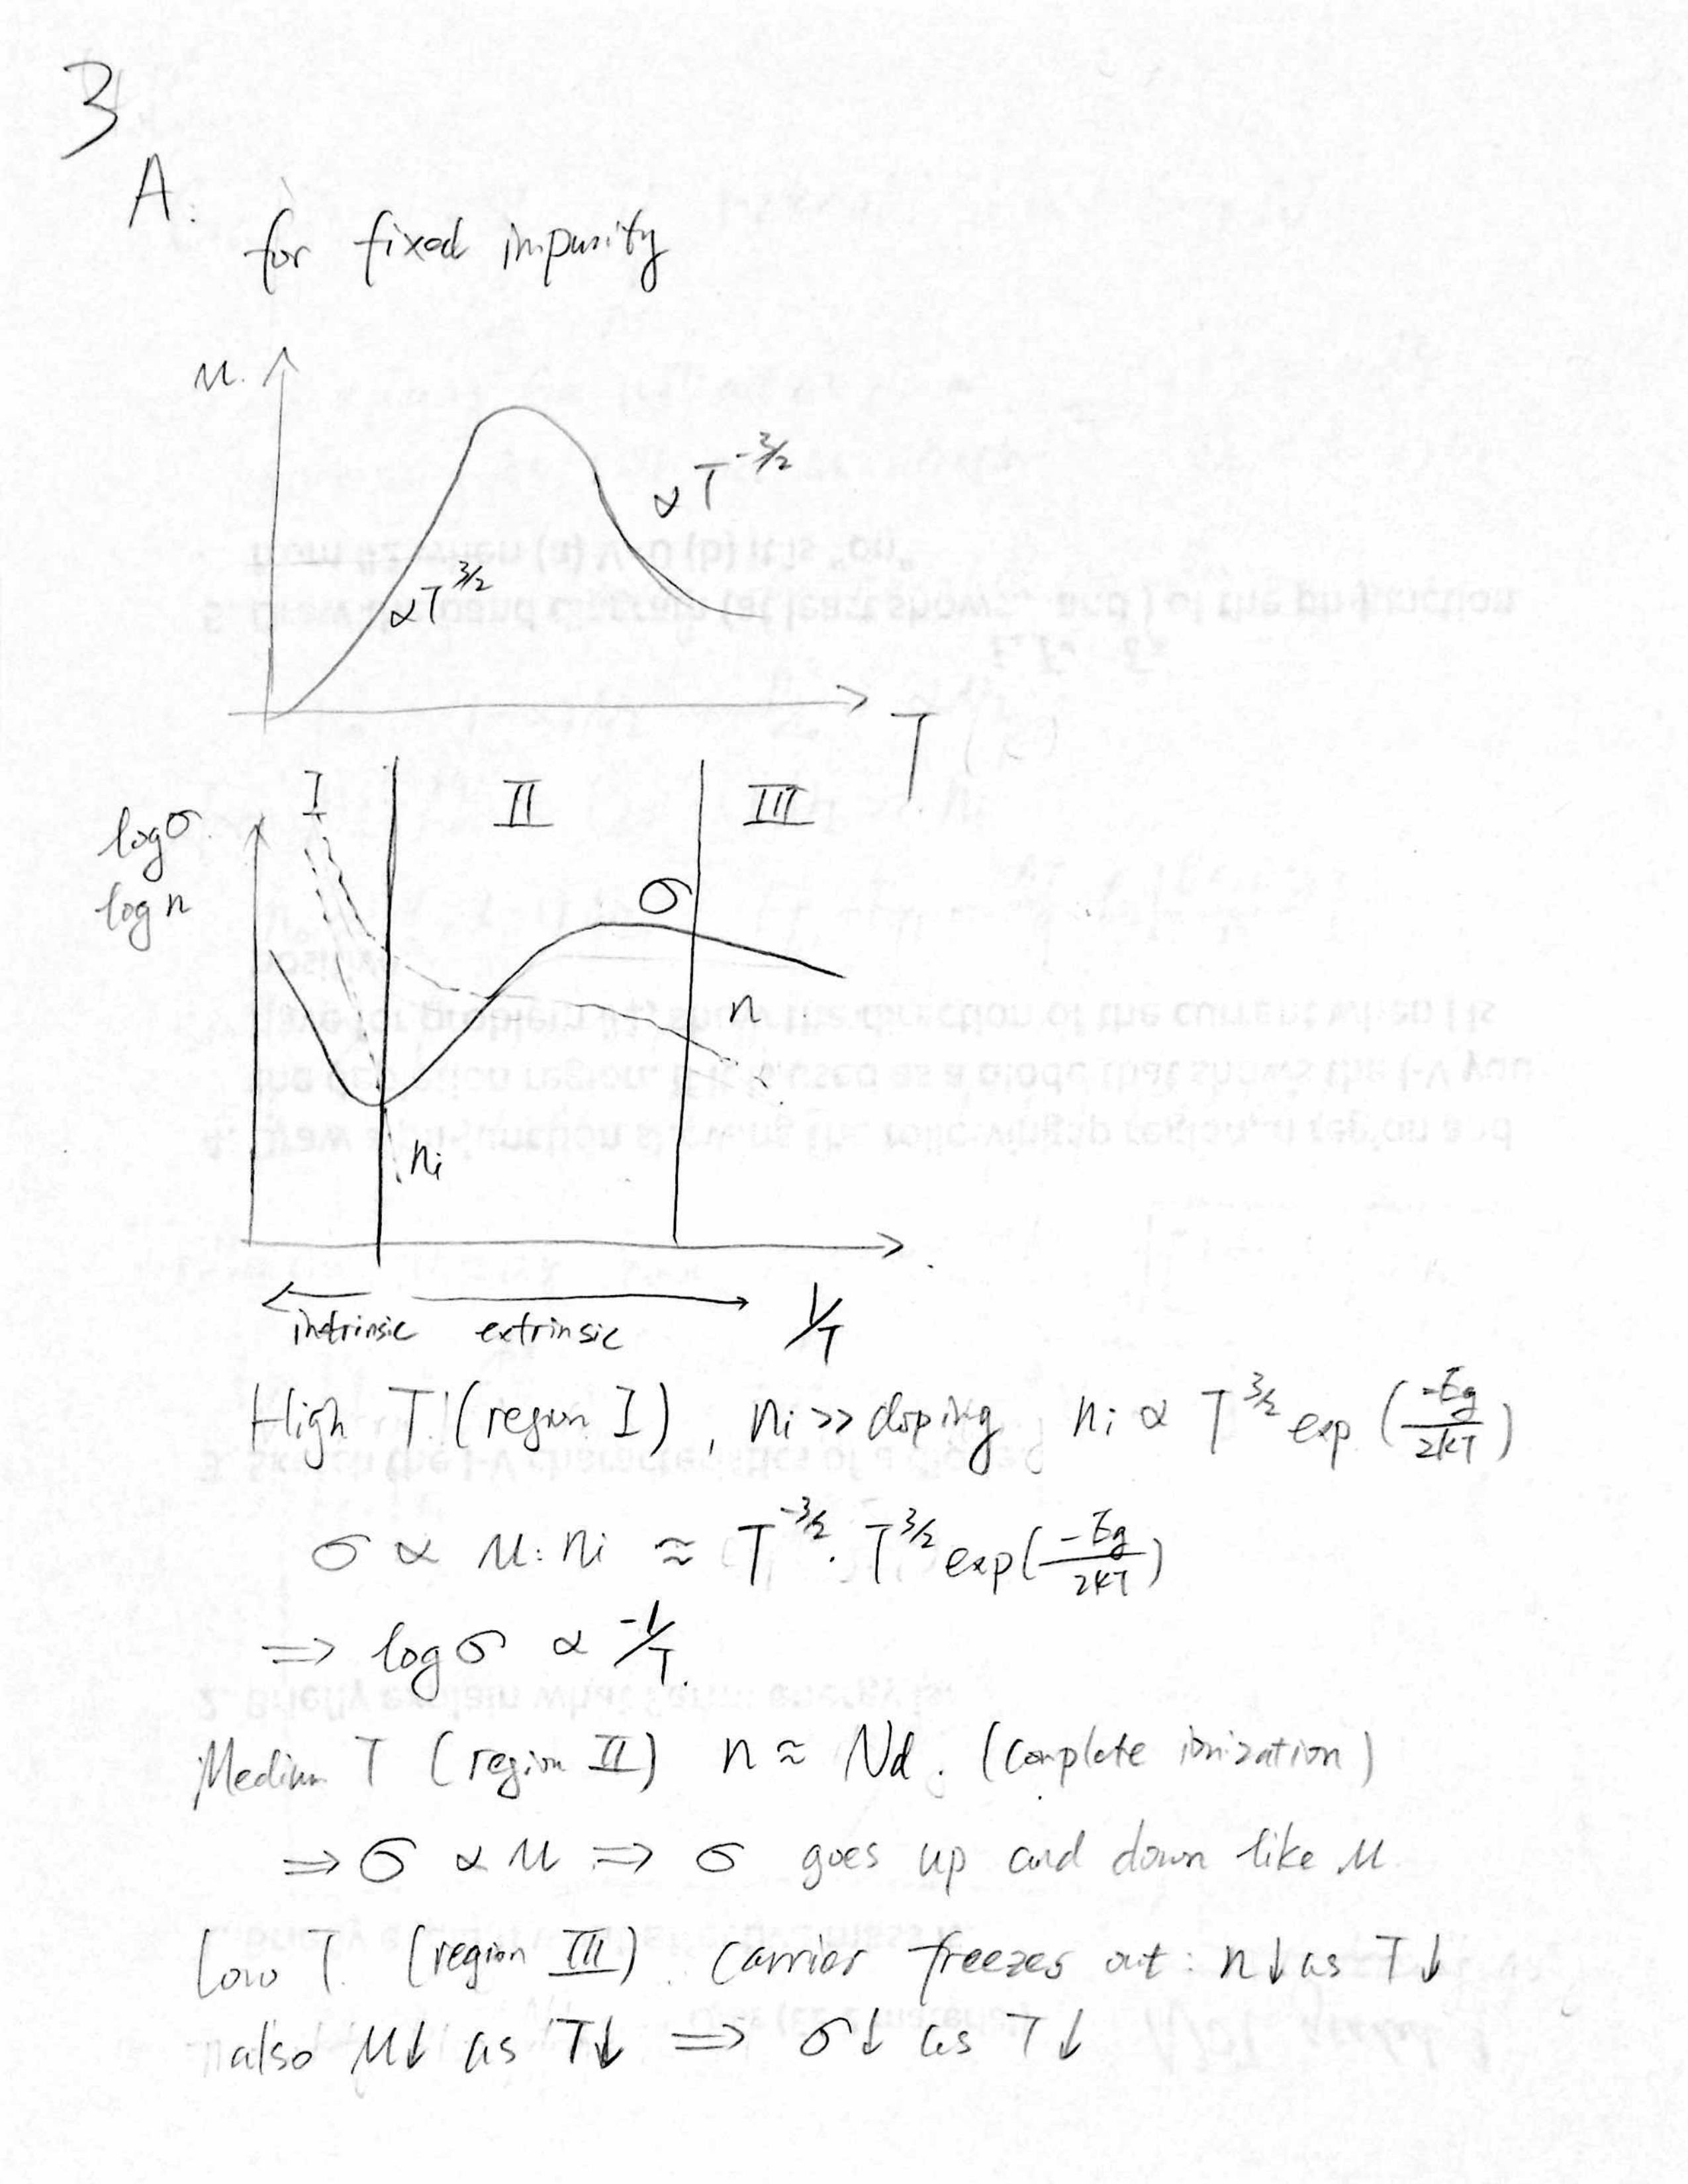 3
A.
for fixed impurity
μ
∝T^3/2
∝T^-3/2
T
I II III
log σ
log n
σ
n
ni
intrinsic extrinsic 1/T
High T (region I), ni >> doping, ni ∝ T^3/2 exp(-Eg/2kT)
σ ∝ μ·ni ≈ T^-3/2 · T^3/2 exp(-Eg/2kT)
⇒ log σ ∝ -1/T.
Medium T (region II) n ≈ Nd. (complete ionization)
⇒ σ ∝ μ ⇒ σ goes up and down like μ
Low T. (region III). Carrier freezes out: n↓ as T↓
also μ↓ as T↓ ⇒ σ↓ as T↓